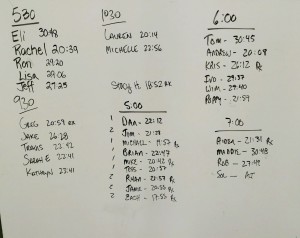 530
Eli 30:48
Rachel 20:39
Ron 29:20
Lisa 29:06
Jeff 27:25
930
GREG 20:59 RX
JAKE 26:28
TRAVIS 22:42
SARAH E 22:41
KATHRYN 22:41
1030
LAUREN 20:14
MICHELLE 22:56
STACY H 18:52 RX
5:00
1 DAN - 22:12
2 JOM - 21:29
1 MICHAEL - 19:57 Rx
1 BRIAN - 22:47
1 MIKE - 20:42 Rx
1 TESS - 20:57
2 RYAN - 21:57 Rx
2 JAMIE - 20:55 Rx
2 ZACH - 17:55 Rx
6:00
Tom - 30:45
ANDREW - 20:08
KRIS - 26:12 Rx
IVO - 29:37
LIIM - 29:40
POPPY - 21:59
7:00
- 21:31 Rx
MANDIE - 30:48
ROB - 27:49